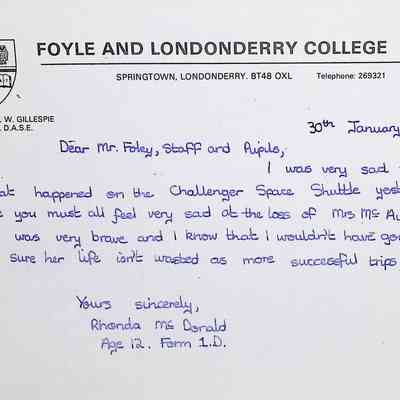 FOYLE AND LONDONDERRY COLLEGE
SPRINGTOWN, LONDONDERRY. BT48 OXL Telephone: 269321
W. GILLESPIE
D.A.S.E.
30th January
Dear Mr. Foley, Staff and Pupils,
I was very sad
at happened on the Challenger Space Shuttle yest
you must all feel very sad at the loss of Mrs Mc Au
was very brave and I know that I wouldn't have gon
sure her life isn't wasted as more successful trips
Yours sincerely,
Rhonda Mc Donald
Age 12. Form 1.D.